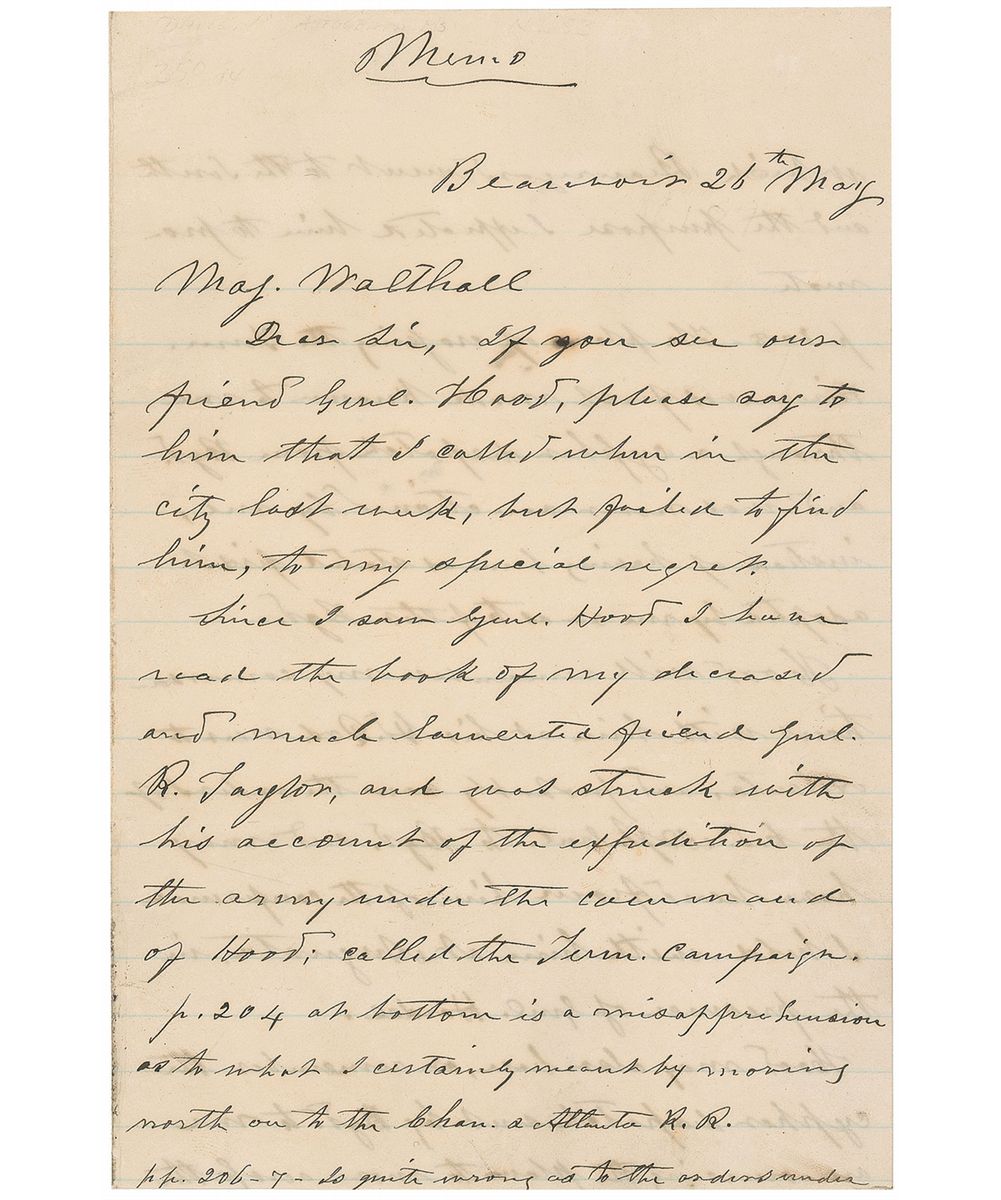 Memo
Beauvoir 26th May
Maj. Walthall
Dear Sir, If you see our
friend Genl. Hood, please say to
him that I called when in the
city last week, but failed to find
him, to my special regret.
Since I saw Genl. Hood I have
read the book of my deceased
and much lamented friend Genl.
R. Taylor, and was struck with
his account of the expedition of
the army under the command
of Hood; called the Tenn. Campaign.
p. 204 at bottom is a misapprehension
as to what I certainly meant by moving
north on to the Chan. & Atlanta R. R.
pp. 206-7- Is quite wrong as to the orders under